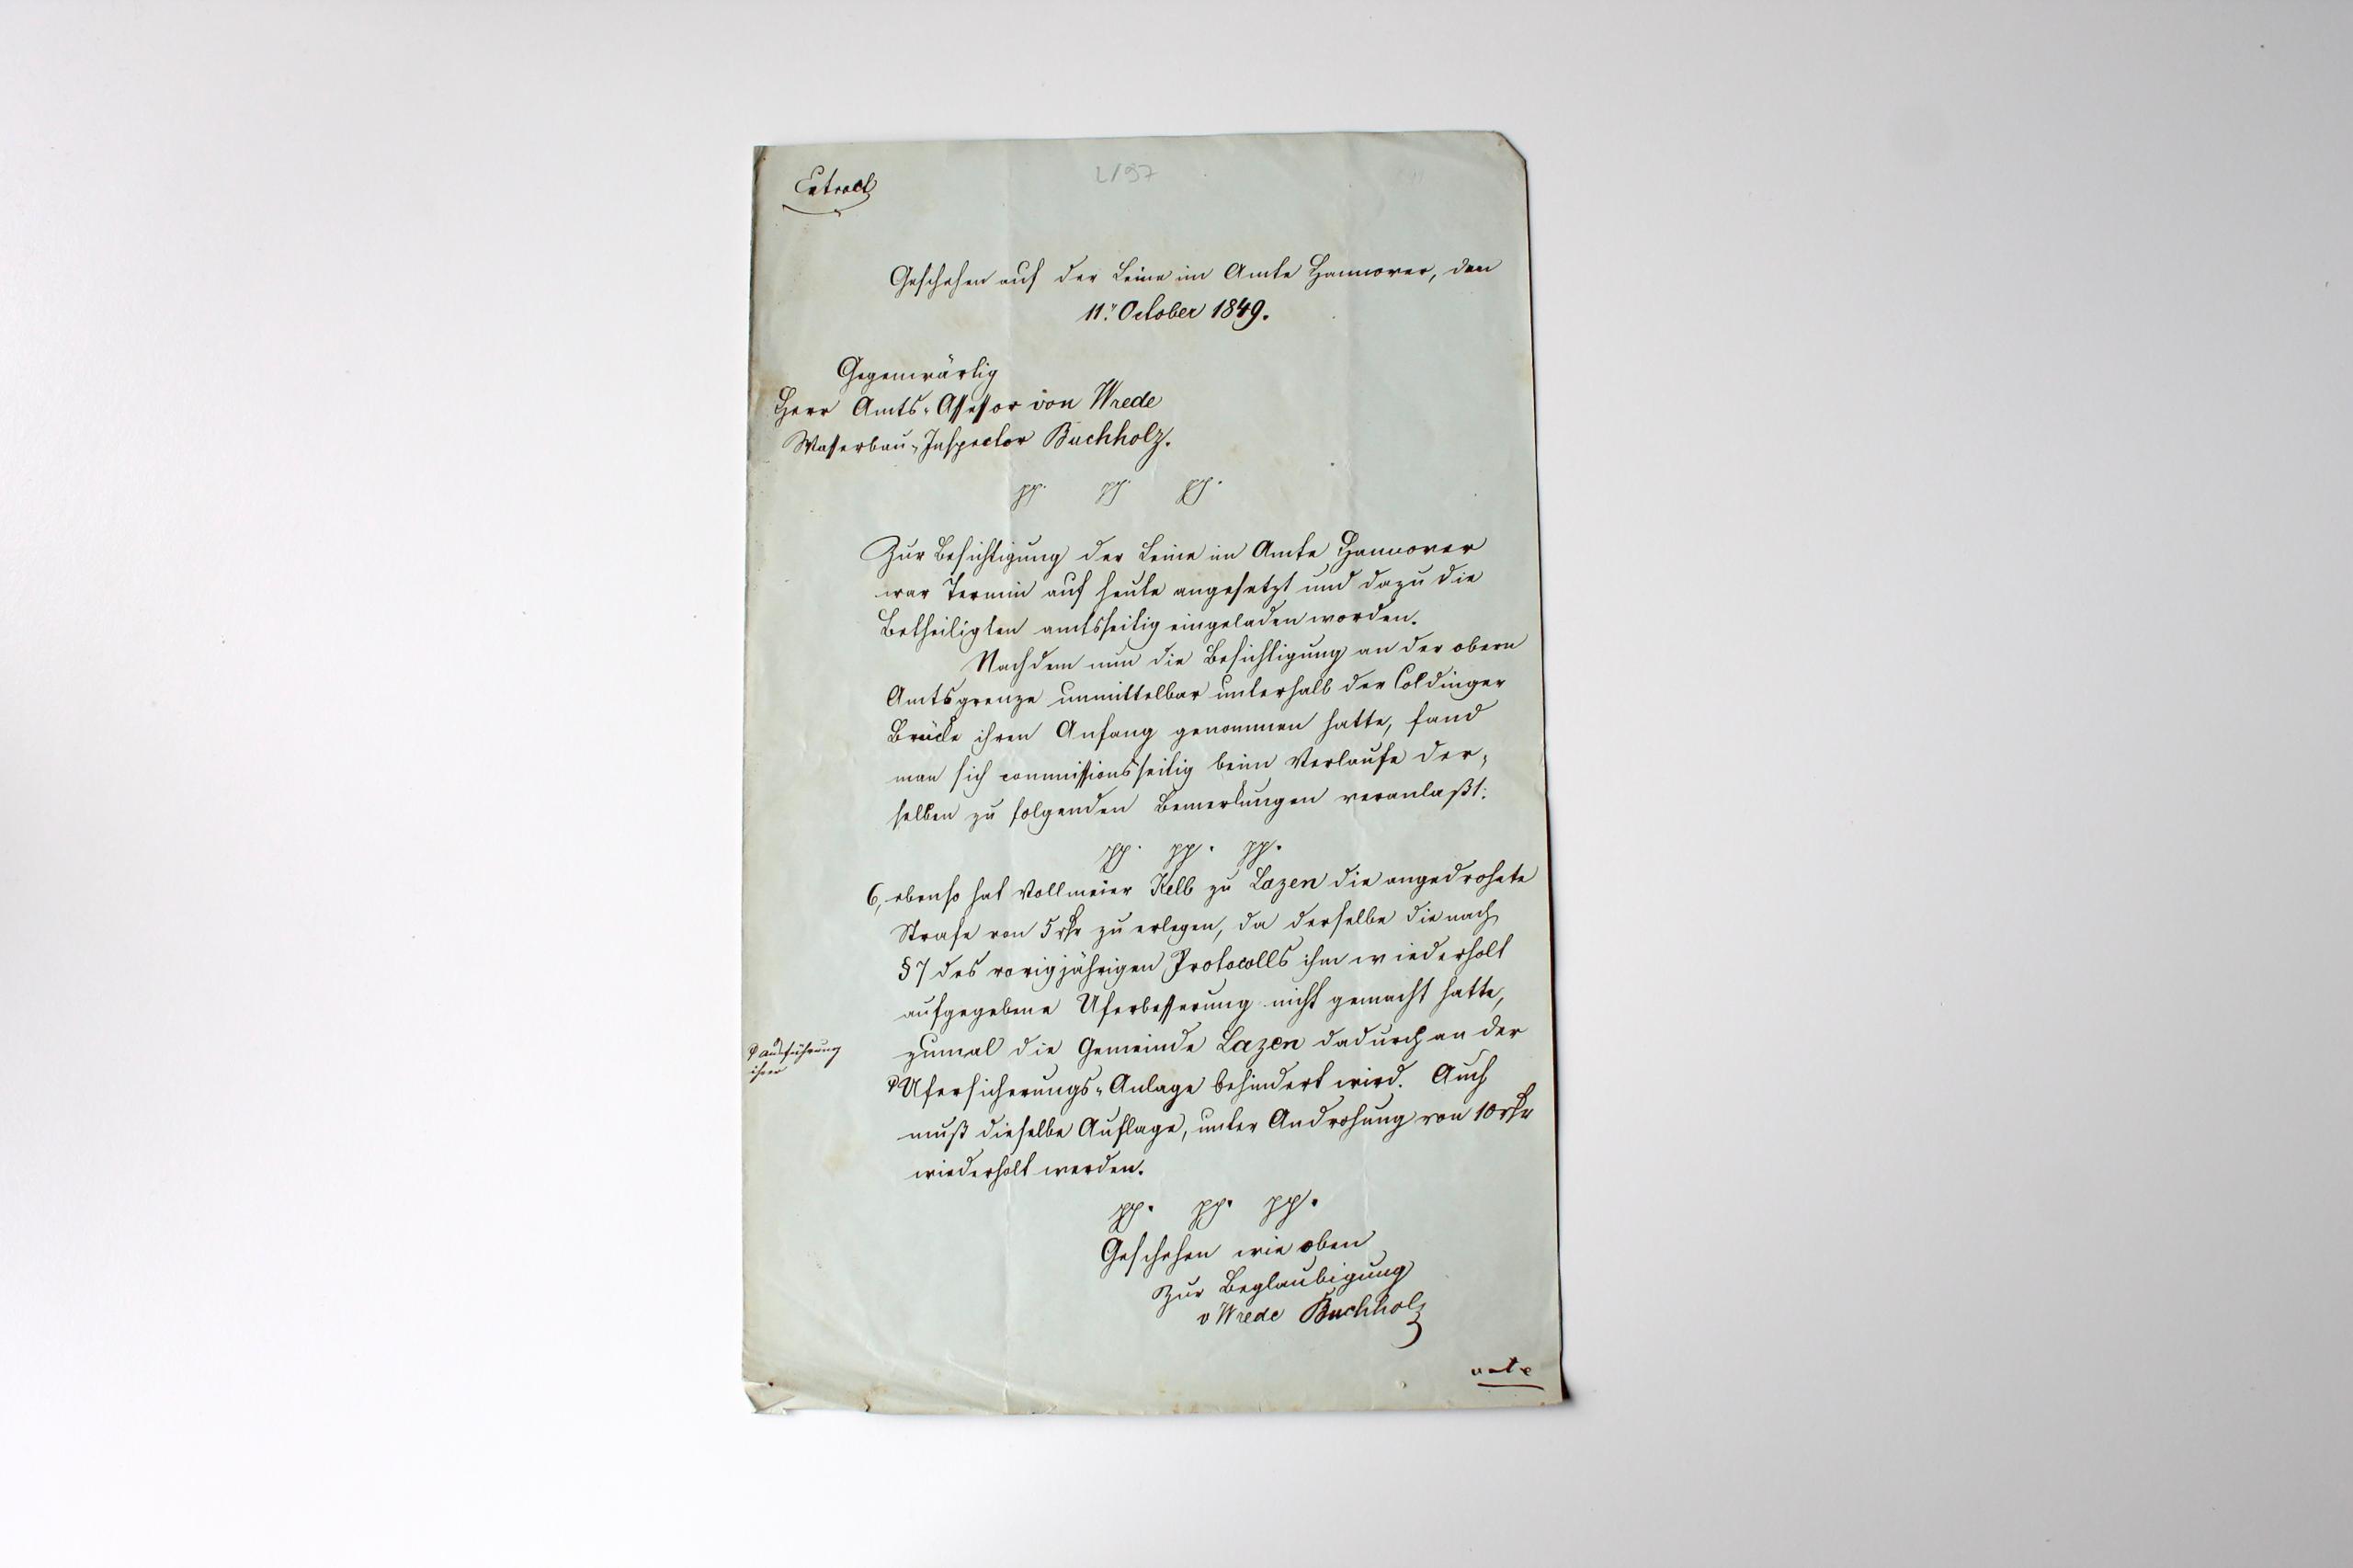 Extract
2/97
Geschehen auf der Leine im Amte Hannover, den
11. October 1849.
Gegenwärtig
Herr Amts-Assessor von Wrede
Wasserbau-Inspector Buchholz.
pp. pp. pp.
Zur Besichtigung der Leine im Amte Hannover
war Termin auf heute angesetzt und dazu die
Betheiligten amtsseitig eingeladen worden.
Nachdem nun die Besichtigung an der obern
Amtsgrenze unmittelbar unterhalb der Coldinger
Brücke ihren Anfang genommen hatte, fand
man sich commissionsseitig beim Verlaufe der-
selben zu folgenden Bemerkungen veranlaßt:
pp. pp. pp.
6, ebenso hat Vollmeier Kelb zu Lazen die angedrohete
Strafe von 5 rthr zu erlegen, da derselbe die nach
§ 7 des vorigjährigen Protocolls ihm wiederholt
aufgegebene Uferbesserung nicht gemacht hatte,
zumal die Gemeinde Lazen dadurch an der
Ausführung
ihrer
Ufersicherungs-Anlage behindert wird. Auch
muß dieselbe Auflage, unter Androhung von 10 rthr
wiederholt werden.
pp. pp. pp.
Geschehen wie oben
Zur Beglaubigung
v Wrede Buchholz